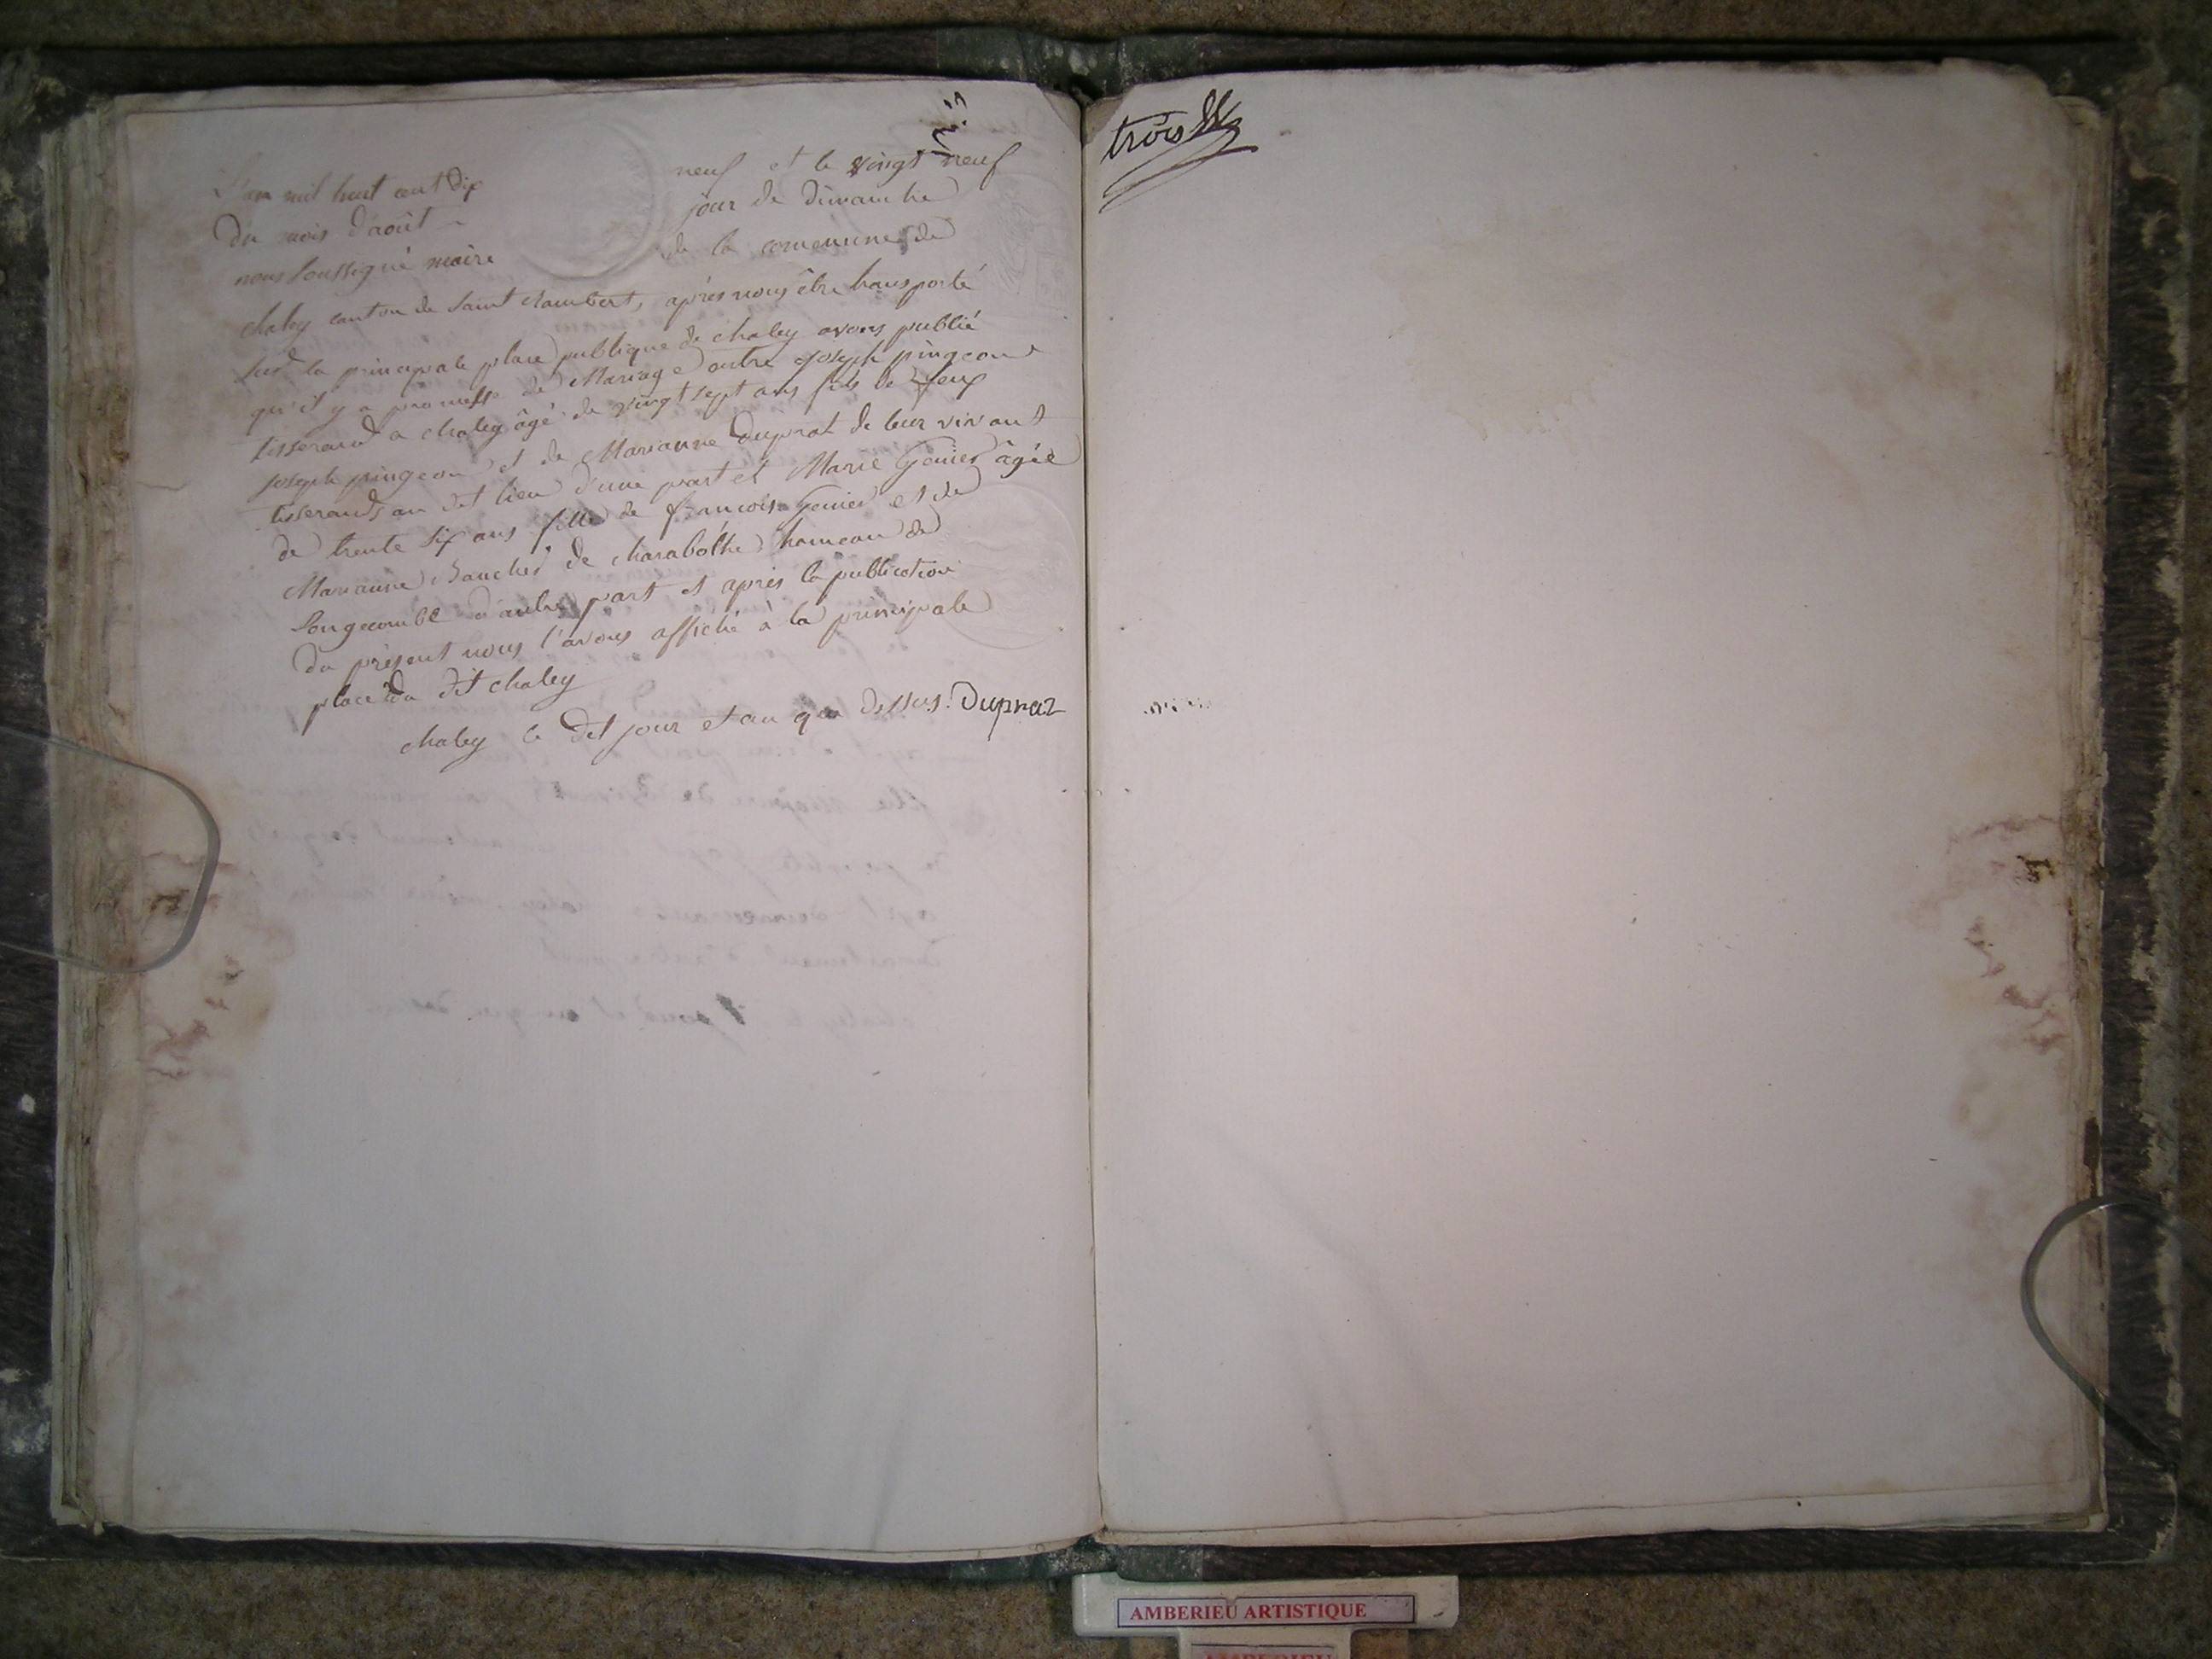 L'an mil huit cent dix neuf et le vingt neuf
du mois d'août jour de dimanche
nous soussigné maire de la commune de
chaley canton de saint rambert, après nous être transporté
sur la principale place publique de chaley avons publié
qu'il y a promesse de Mariage entre joseph pingeon
tisserand a chaley âgé de vingt sept ans fils de feux
joseph pingeon et de Marianne Duprat de leur vivant
tisserands au dit lieu d'une part et Marie Genier âgée
de trente six ans fille de francois Genier et de
Marianne de charabothe hameau de
longecombe d'autre part et après la publication
du présent nous l'avons affiché à la principale
place du dit chaley
chaley le dit jour et an que dessus. Dupraz
trois
AMBERIEU ARTISTIQUE
AMBERIEU